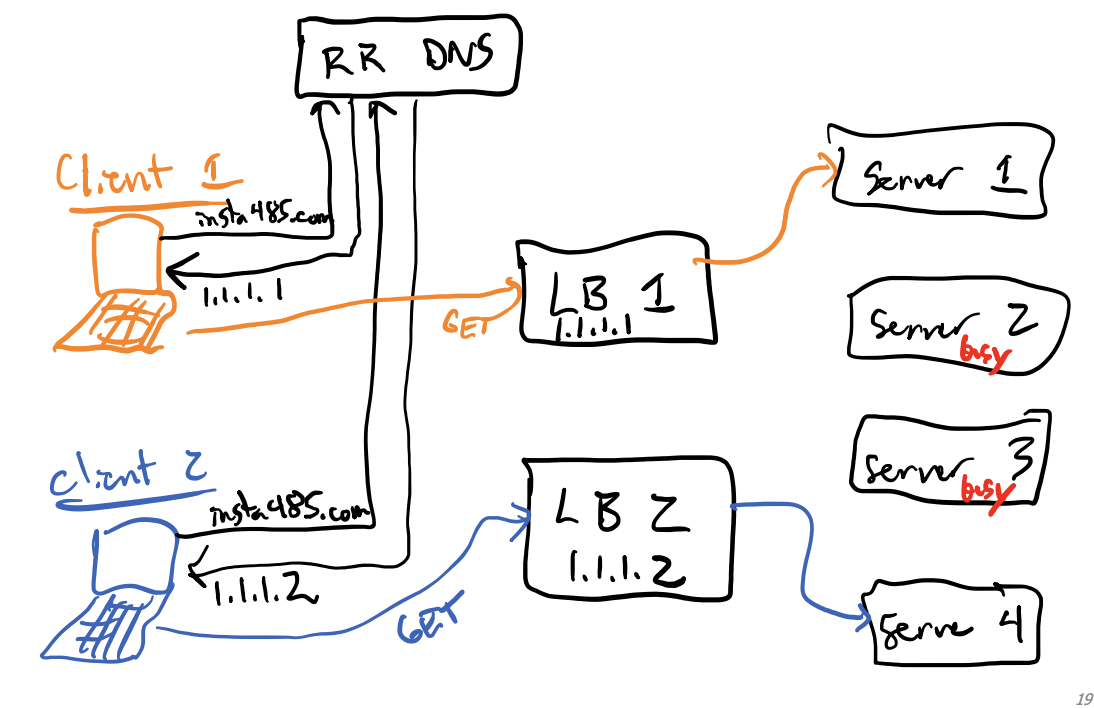 RR DNS
Client 1
insta485.com
1.1.1.1
GET
LB 1
1.1.1.1
Server 1
Server 2
busy
Server 3
busy
client 2
insta485.com
1.1.1.2
GET
LB 2
1.1.1.2
Serve 4
19